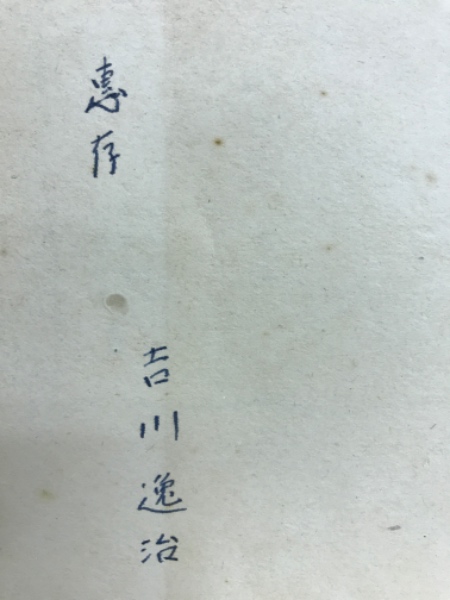 惠存
吉川逸治